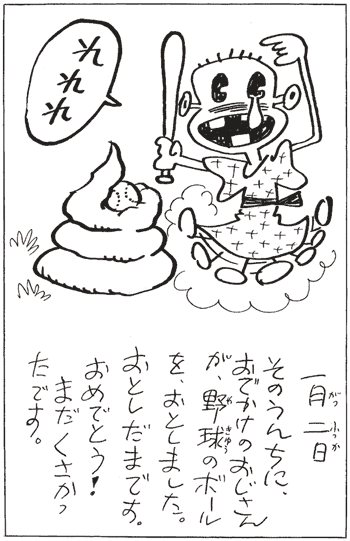 れれれ
一月二日
がつ ふつか
そのうんちに、
おでかけのおじさん
が、野球のボール
や きゅう
を、おとしました。
おとしだまです。
おめでとう！
まだくさかっ
たです。